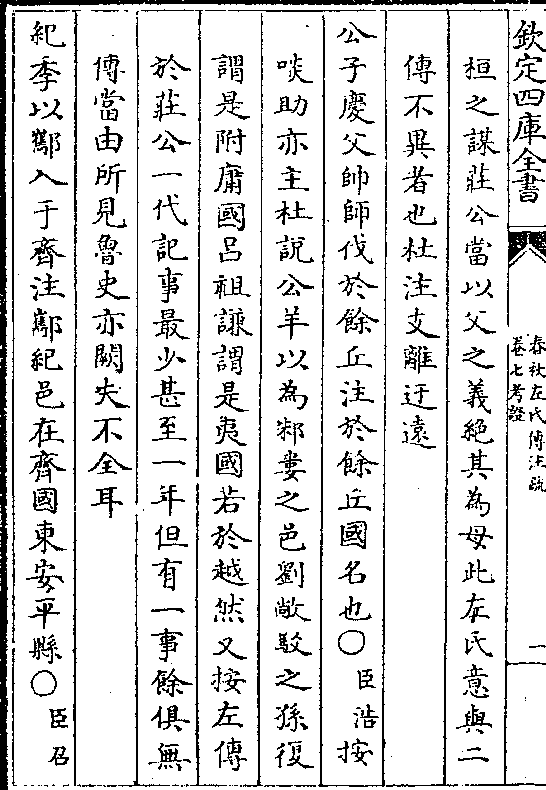 欽定四庫全書
春秋左氏傳注疏
卷七考證
一
桓之謀莊公當以父之義絕其為母此左氏意與二
傳不異者也杜注支離迂遠
公子慶父帥師伐於餘丘注於餘丘國名也○臣浩按
啖助亦主杜說公羊以為邾婁之邑劉敞駁之孫復
謂是附庸國呂祖謙謂是夷國若於越然又按左傳
於莊公一代記事最少甚至一年但有一事餘俱無
傳當由所見魯史亦闕失不全耳
紀季以酅入于齊注酅紀邑在齊國東安平縣○臣召